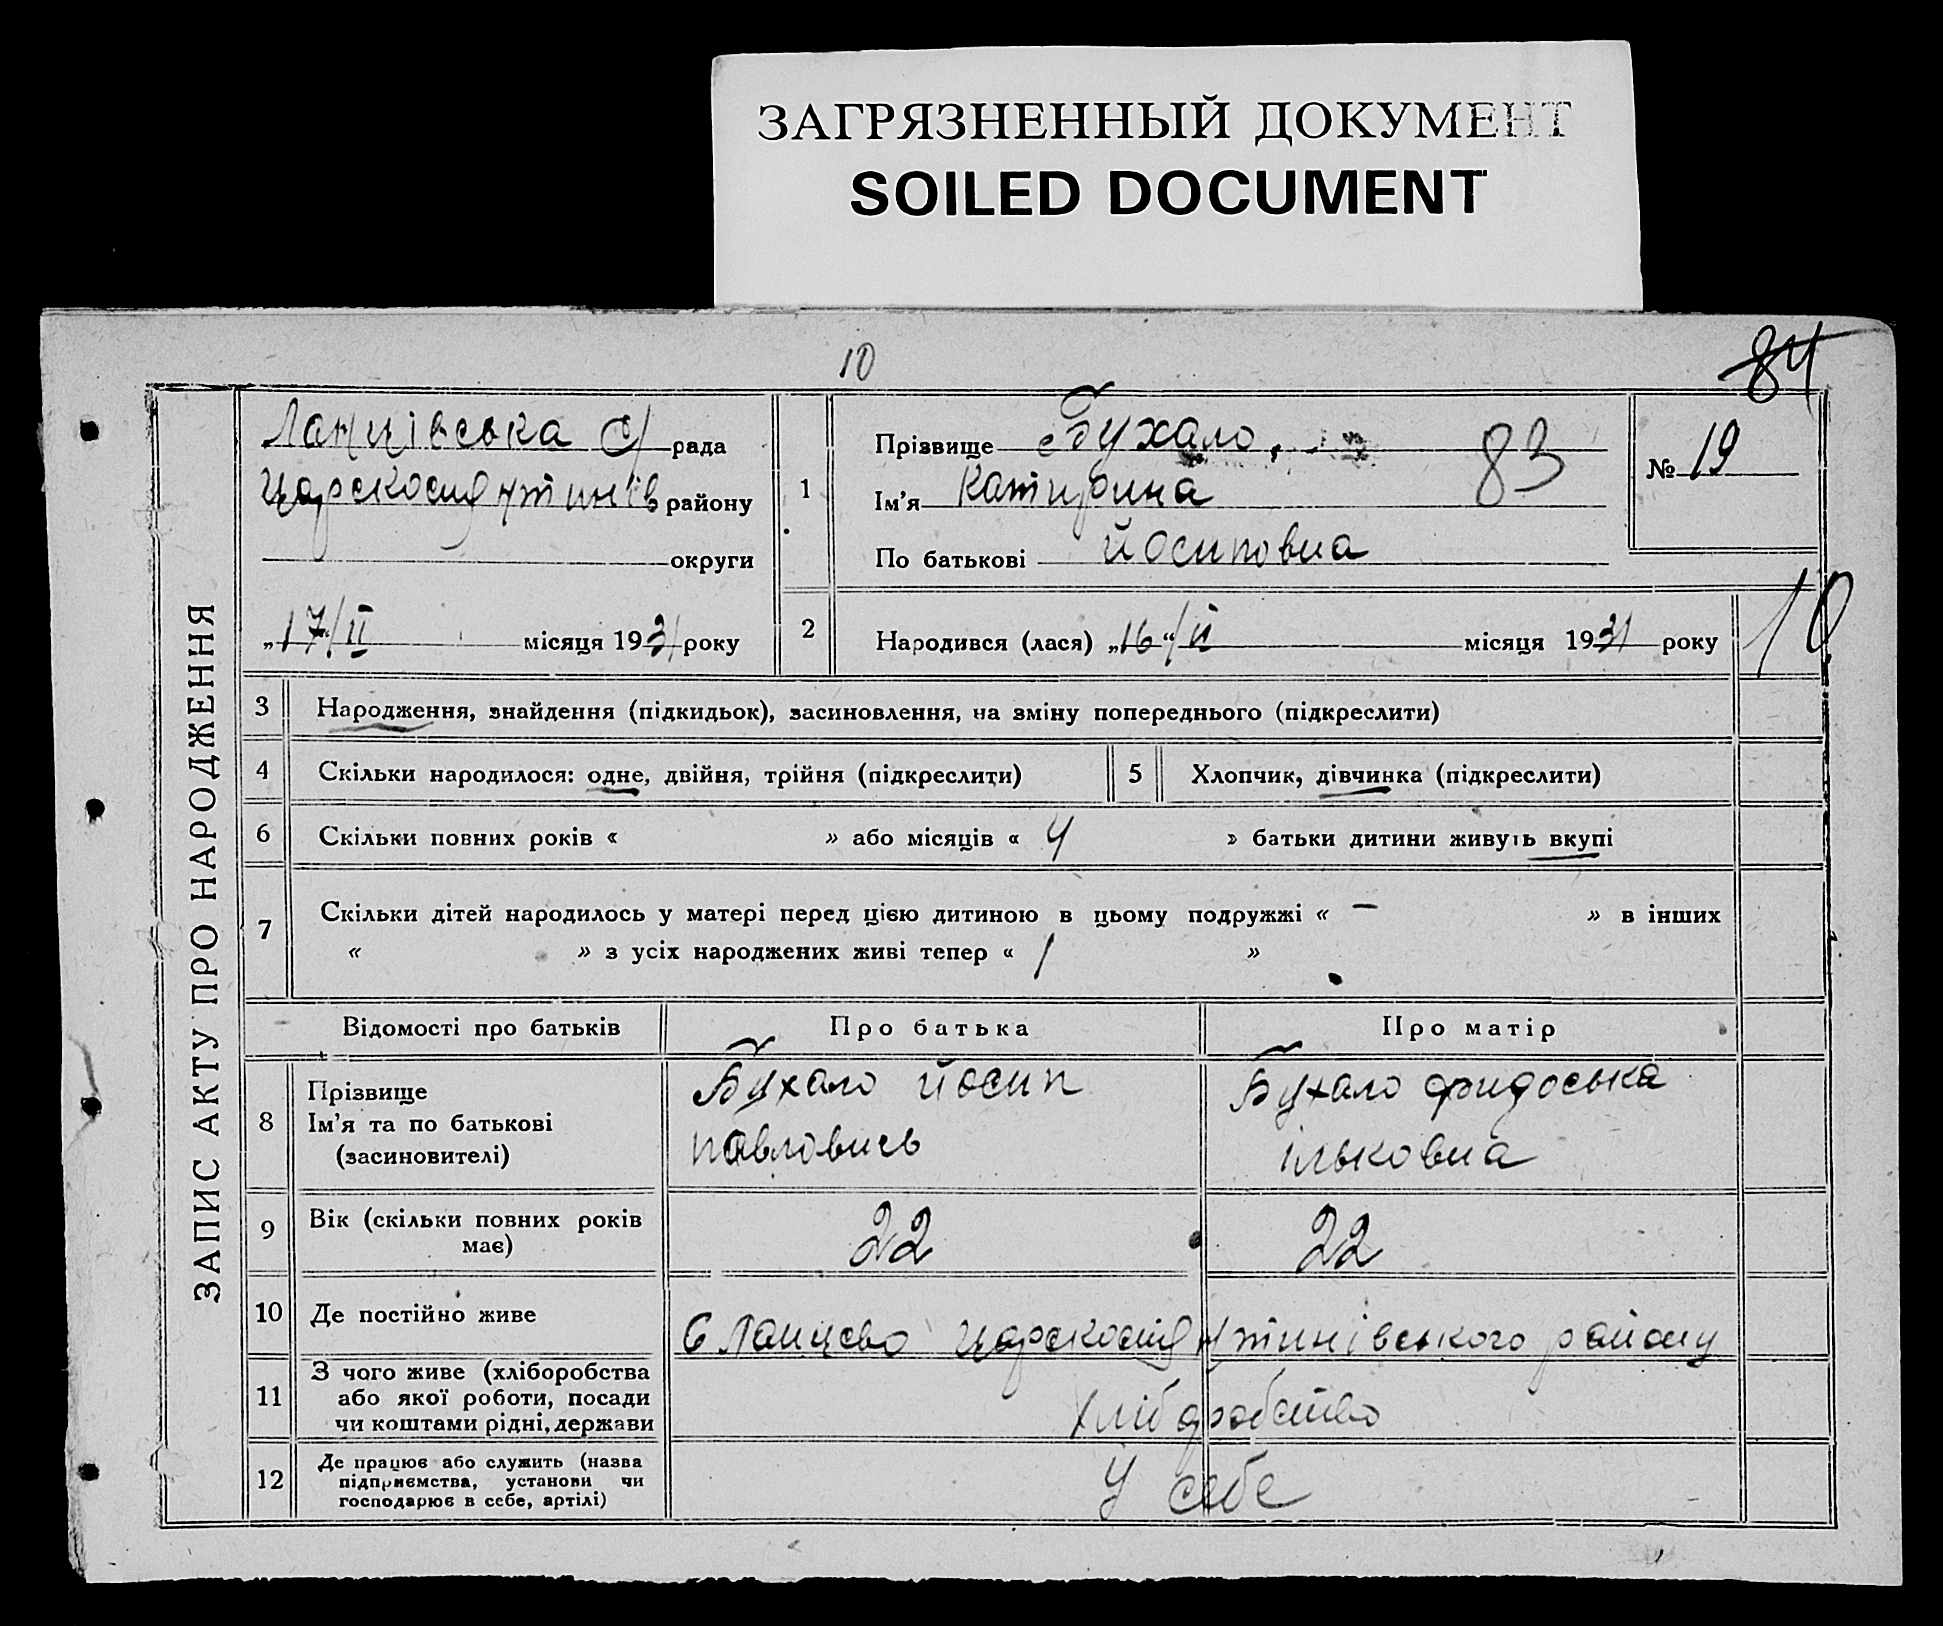 ЗАГРЯЗНЕННЫЙ ДОКУМЕНТ
SOILED DOCUMENT
10
84
ЗАПИС АКТУ ПРО НАРОДЖЕННЯ
Ланцівська с/рада
району
округи
„17/II місяця 1931 року
1
Прізвище Бухало.
83
Ім'я Катирина
По батькові Йосиповна
№ 19
2
Народився (лася) „16“/II місяця 1931 року
10
3 Народження, знайдення (підкидьок), засиновлення, на зміну попереднього (підкреслити)
4 Скільки народилося: одне, двійня, трійня (підкреслити) 5 Хлопчик, дівчинка (підкреслити)
6 Скільки повних років « » або місяців « 4 » батьки дитини живуть вкупі
7 Скільки дітей народилось у матері перед цією дитиною в цьому подружжі « — » в інших
« » з усіх народжених живі тепер « 1 »
Відомості про батьків Про батька Про матір
8 Прізвище
Ім'я та по батькові
(засиновителі)
Бухало Йосип
Павловичь
Бухало Фидоська
ільковна
9 Вік (скільки повних років
має)
22 22
10 Де постійно живе
с Ланцево района
11 З чого живе (хліборобства
або якої роботи, посади
чи коштами рідні, держави
хліборобство
12 Де працює або служить (назва
підприємства, установи чи
господарює в себе, артілі)
У себе